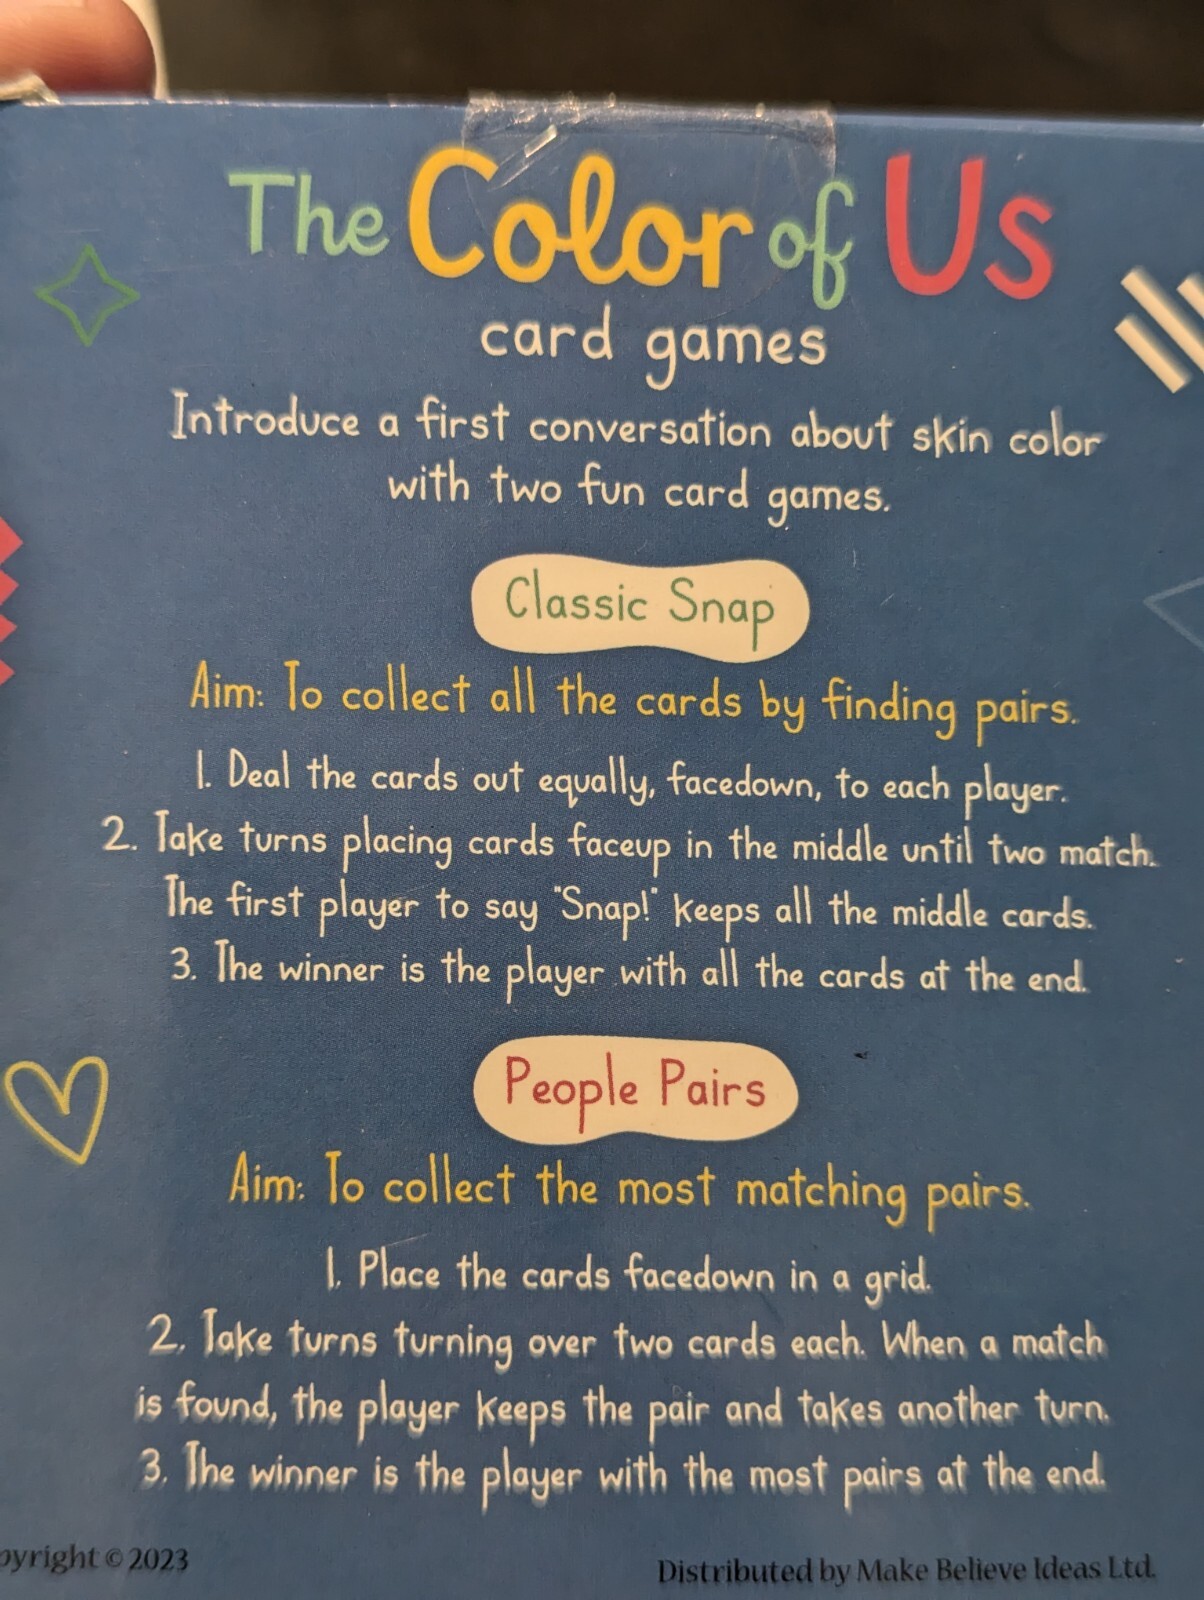 The Color of Us
card games
Introduce a first conversation about skin color
with two fun card games.
Classic Snap
Aim: To collect all the cards by finding pairs.
1. Deal the cards out equally, facedown, to each player.
2. Take turns placing cards faceup in the middle until two match.
The first player to say "Snap!" keeps all the middle cards.
3. The winner is the player with all the cards at the end.
People Pairs
Aim: To collect the most matching pairs.
1. Place the cards facedown in a grid.
2. Take turns turning over two cards each. When a match
is found, the player keeps the pair and takes another turn.
3. The winner is the player with the most pairs at the end.
pyright © 2023
Distributed by Make Believe Ideas Ltd.